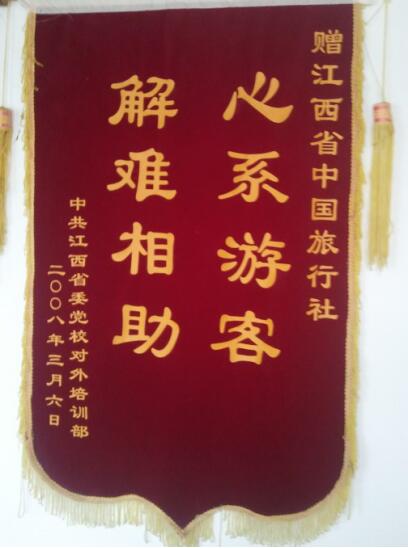 赠江西省中国旅行社
心系游客
解难相助
中共江西省委党校对外培训部
二〇〇八年三月六日